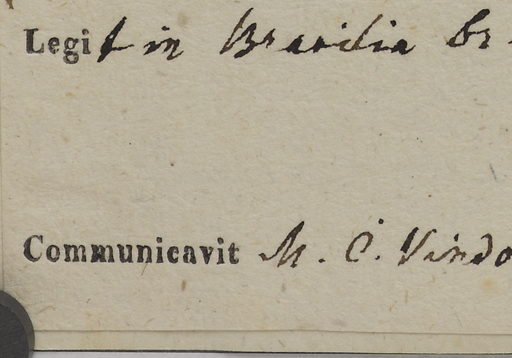 Legit in Brasilia br
Communicavit M. C. Vindo